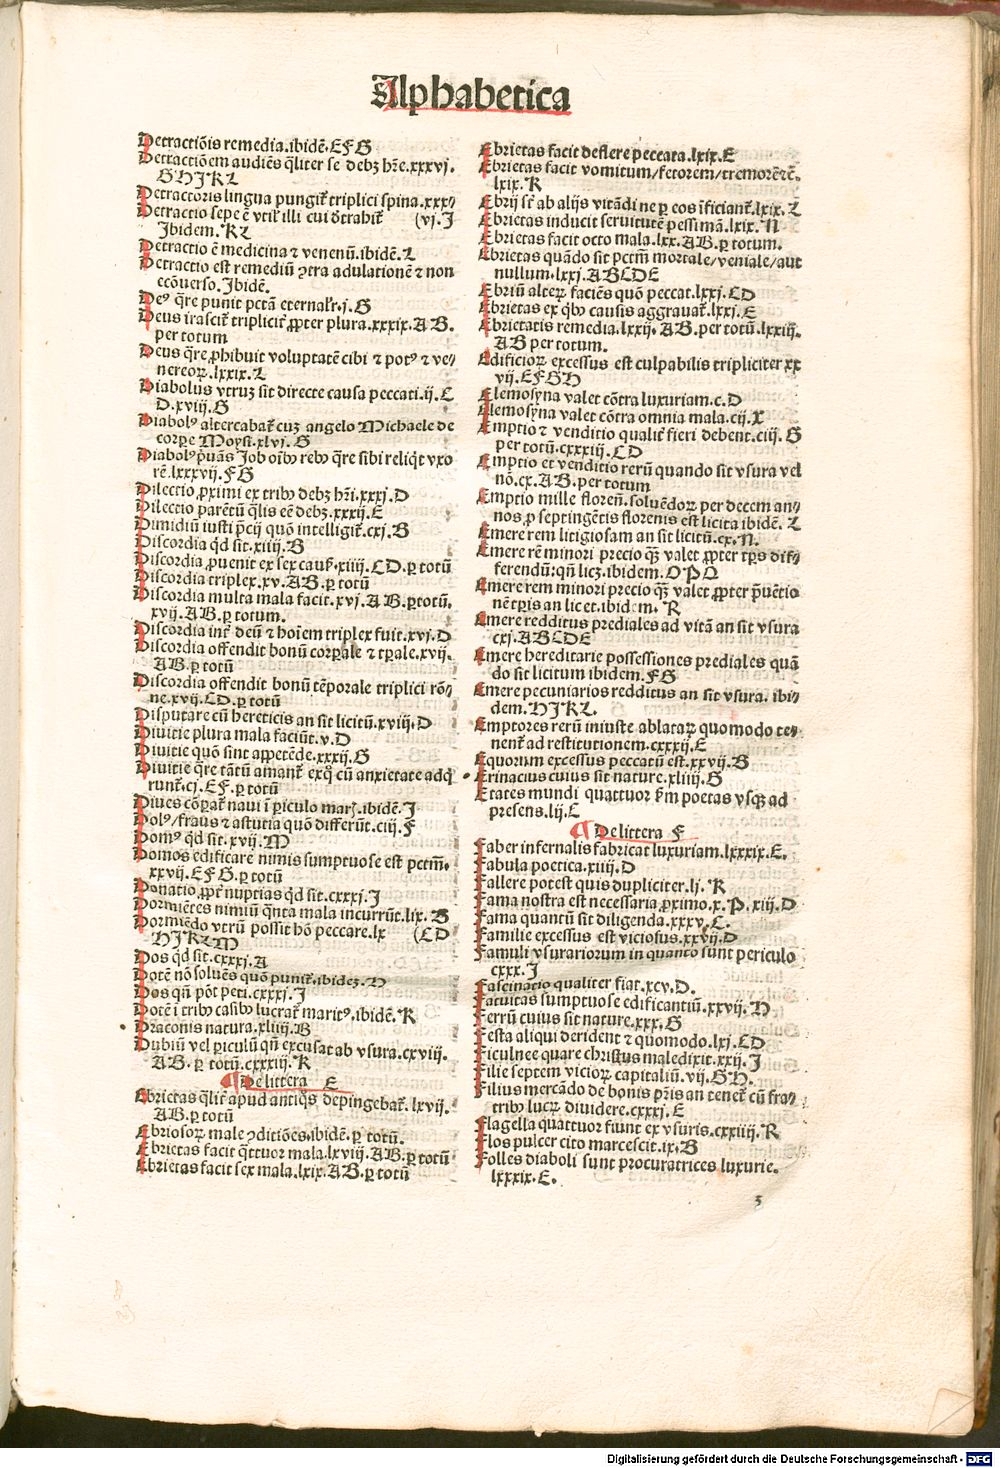 Alphabetica
Detractiõis remedia.ibidē.EFG
Detractiõem audiēs q̃liter se debꝫ hr̃e.xxxvj.
GHJKL
Detractoris lingua pungit̃ triplici spina.xxx⸗
Detractio sepe ē vtil' illi cui dètrahit̃ (vj.J
Ibidem.KL
Detractio ē medicina ⁊ venenũ.ibidē.L
Detractio est remediũ ꝯtra adulationē ⁊ non
ecõuerso.Ibidē.
Deꝰ q̃re punit pctã eternal'r.j.G
Deus irascit̃ triplicit̃ ꝓpter plura.xxxix.AB.
per totum
Deus q̃re ꝓhibuit voluptatē cibi ⁊ potꝰ ⁊ ve⸗
nereoꝝ.lxxix.L
Diabolus vtruꝫ sit directe causa peccati.ij.C
D.xviij.G
Diabolꝰ altercabat̃ cuꝫ angelo Michaele de
corꝑe Moysi.xlvj.G
Diabolꝰ p̃uãs Job oĩbꝰ rebꝰ q̃re sibi reliq̃t vxo
rē.lxxxvij.FG
Dilectio ꝓximi ex tribꝰ debꝫ hr̃i.xxxj.D
Dilectio parētũ q̃lis eē debꝫ.xxxij.E
Dimidiũ iusti p̃cij quõ intelligit̃.cxj.B
Discordia q̃d sit.xiiij.B
Discordia ꝓuenit ex sex causꝭ.xiiij.CD.ꝑ totũ
Discordia triplex.xv.AB.ꝑ totũ
Discordia multa mala facit.xvj.AB.ꝑtotũ.
xvij.AB.ꝑ totum.
Discordia int̃ deũ ⁊ hoĩem triplex fuit.xvj.D
Discordia offendit bonũ corꝑale ⁊ tp̃ale.xvij.
AB.ꝑ totũ
Discordia offendit bonũ tēporale triplici rõ⸗
ne.xvij.CD.ꝑ totũ
Disputare cũ hereticis an sit licitũ.xviij.D
Diuitie plura mala faciũt.v.D
Diuitie quõ sint appetēde.xxxij.G
Diuitie q̃re tãtũ amant̃ exq̃ cũ anxietate adq̃
runt̃.cj.EF.ꝑ totũ
Diues cõꝑat̃ naui ĩ ꝑiculo marꝭ.ibidē.J
Dolꝰ/fraus ⁊ astutia quõ differũt.ciij.F
Domꝰ q̃d sit.xvij.M
Domos edificare nimis sumptuose est pctm̃.
xxvij.EFG.ꝑ totũ
Donatio ꝓpt̃ nuptias q̃d sit.cxxxj.J
Dormiētes nimiũ q̃nta mala incurrũt.lix.B
Dormiēdo vtrũ possit hõ peccare.lx (CD
HJKLM
Dos q̃d sit.cxxxj.A
Dotē nõ soluēs quõ punit̃.ibideꝫ.H
Dos qñ põt peti.cxxxj.J
Dotē ĩ tribꝰ casibꝰ lucrat̃ maritꝰ.ibidē.K
Draconis natura.xliiij.B
Dubiũ vel ꝑiculũ qñ excusat ab vsura.cxviij.
AB.ꝑ totũ.cxxxiij.K
¶ De littera E
Ebrietas q̃lit̃ apud antiq̃s depingebat̃.lxvij.
AB.ꝑ totũ
Ebriosoꝝ male ꝯditiões.ibidē.ꝑ totũ.
Ebrietas facit q̃ttuor mala.lxviij.AB.ꝑ totũ
Ebrietas facit sex mala.lxix.AB.ꝑ totũ
Ebrietas facit deflere peccata.lxix.E
Ebrietas facit vomitum/fetorem/tremorē⁊c̃.
lxix.K
Ebrij sũt ab alijs vitãdi ne ꝑ eos ĩficiant̃.lxix.L
Ebrietas inducit seruitutē pessimã.lxix.N
Ebrietas facit octo mala.lxx.AB.ꝑ totum.
Ebrietas quãdo sit pctm̃ mortale/veniale/aut
nullum.lxxj.ABCDE
Ebriũ alteꝝ faciēs quõ peccat.lxxj.CD
Ebrietas ex q̃bꝰ causis aggrauat̃.lxxj.E
Ebrietatis remedia.lxxij.AB.per totũ.lxxiij.
AB per totum.
Edificioꝝ excessus est culpabilis tripliciter xx
vij.EFGH
Elemosyna valet cõtra luxuriam.c.D
Elemosyna valet cõtra omnia mala.cij.X
Emptio ⁊ venditio qualit̃ fieri debent.ciij.G
per totũ.cxxxiij.CD
Emptio et venditio rerũ quando sit vsura vel
nõ.cx.AB.per totum
Emptio mille florenꝝ.soluēdoꝝ per decem an⸗
nos ꝓ septingētis florenis est licita ibidē.L
Emere rem litigiosam an sit licitũ.cx.N.
Emere rē minori precio q̃ꝫ valet ꝓpter tp̃s dif⸗
ferendũ:qñ licꝫ.ibidem.OPQ
Emere rem minori precio q̃ꝫ valet ꝓpter p̃uētio
nē tp̃is an licet.ibidem.R
Emere redditus prediales ad vitã an sit vsura
cxj.ABCDE
Emere hereditarie possessiones prediales quã
do sit licitum ibidem.FG
Emere pecuniarios redditus an sit vsura.ibi⸗
dem.HJKL.
Emptores rerũ iniuste ablataꝝ quomodo te⸗
nent̃ ad restitutionem.cxxxij.E
Equorum excessus peccatũ est.xxvij.B
Erinacius cuius sit nature.xliiij.G
Etates mundi quattuor ẜm poetas vsqꝫ ad
presens.lij.E
¶ De littera F
Faber infernalis fabricat luxuriam.lxxxix.E.
Fabula poetica.xiiij.D
Fallere potest quis dupliciter.lj.K
Fama nostra est necessaria ꝓximo.x.P.xiij.D
Fama quantũ sit diligenda.xxxv.C.
Familie excessus est viciosus.xxvij.D
Famuli vsurariorum in quanto sunt periculo
cxxx.J
Fascinatio qualiter fiat.xcv.D.
Fatuitas sumptuose edificantiũ.xxvij.H
Ferrũ cuius sit nature.xxx.G
Festa aliqui derident ⁊ quomodo.lxj.CD
Ficulnee quare christus maledixit.xxij.J
Filie septem vicioꝝ capitaliũ.vij.GH.
Filius mercãdo de bonis pr̃is an tenet̃ cũ fra⸗
tribꝰ lucꝝ diuidere.cxxxj.E
Flagella quattuor fiunt ex vsuris.cxxiiij.K
Flos pulcer cito marcescit.ix.B
Folles diaboli sunt procuratrices luxurie.
lxxxix.E.
3
Digitalisierung gefördert durch die Deutsche Forschungsgemeinschaft - DFG